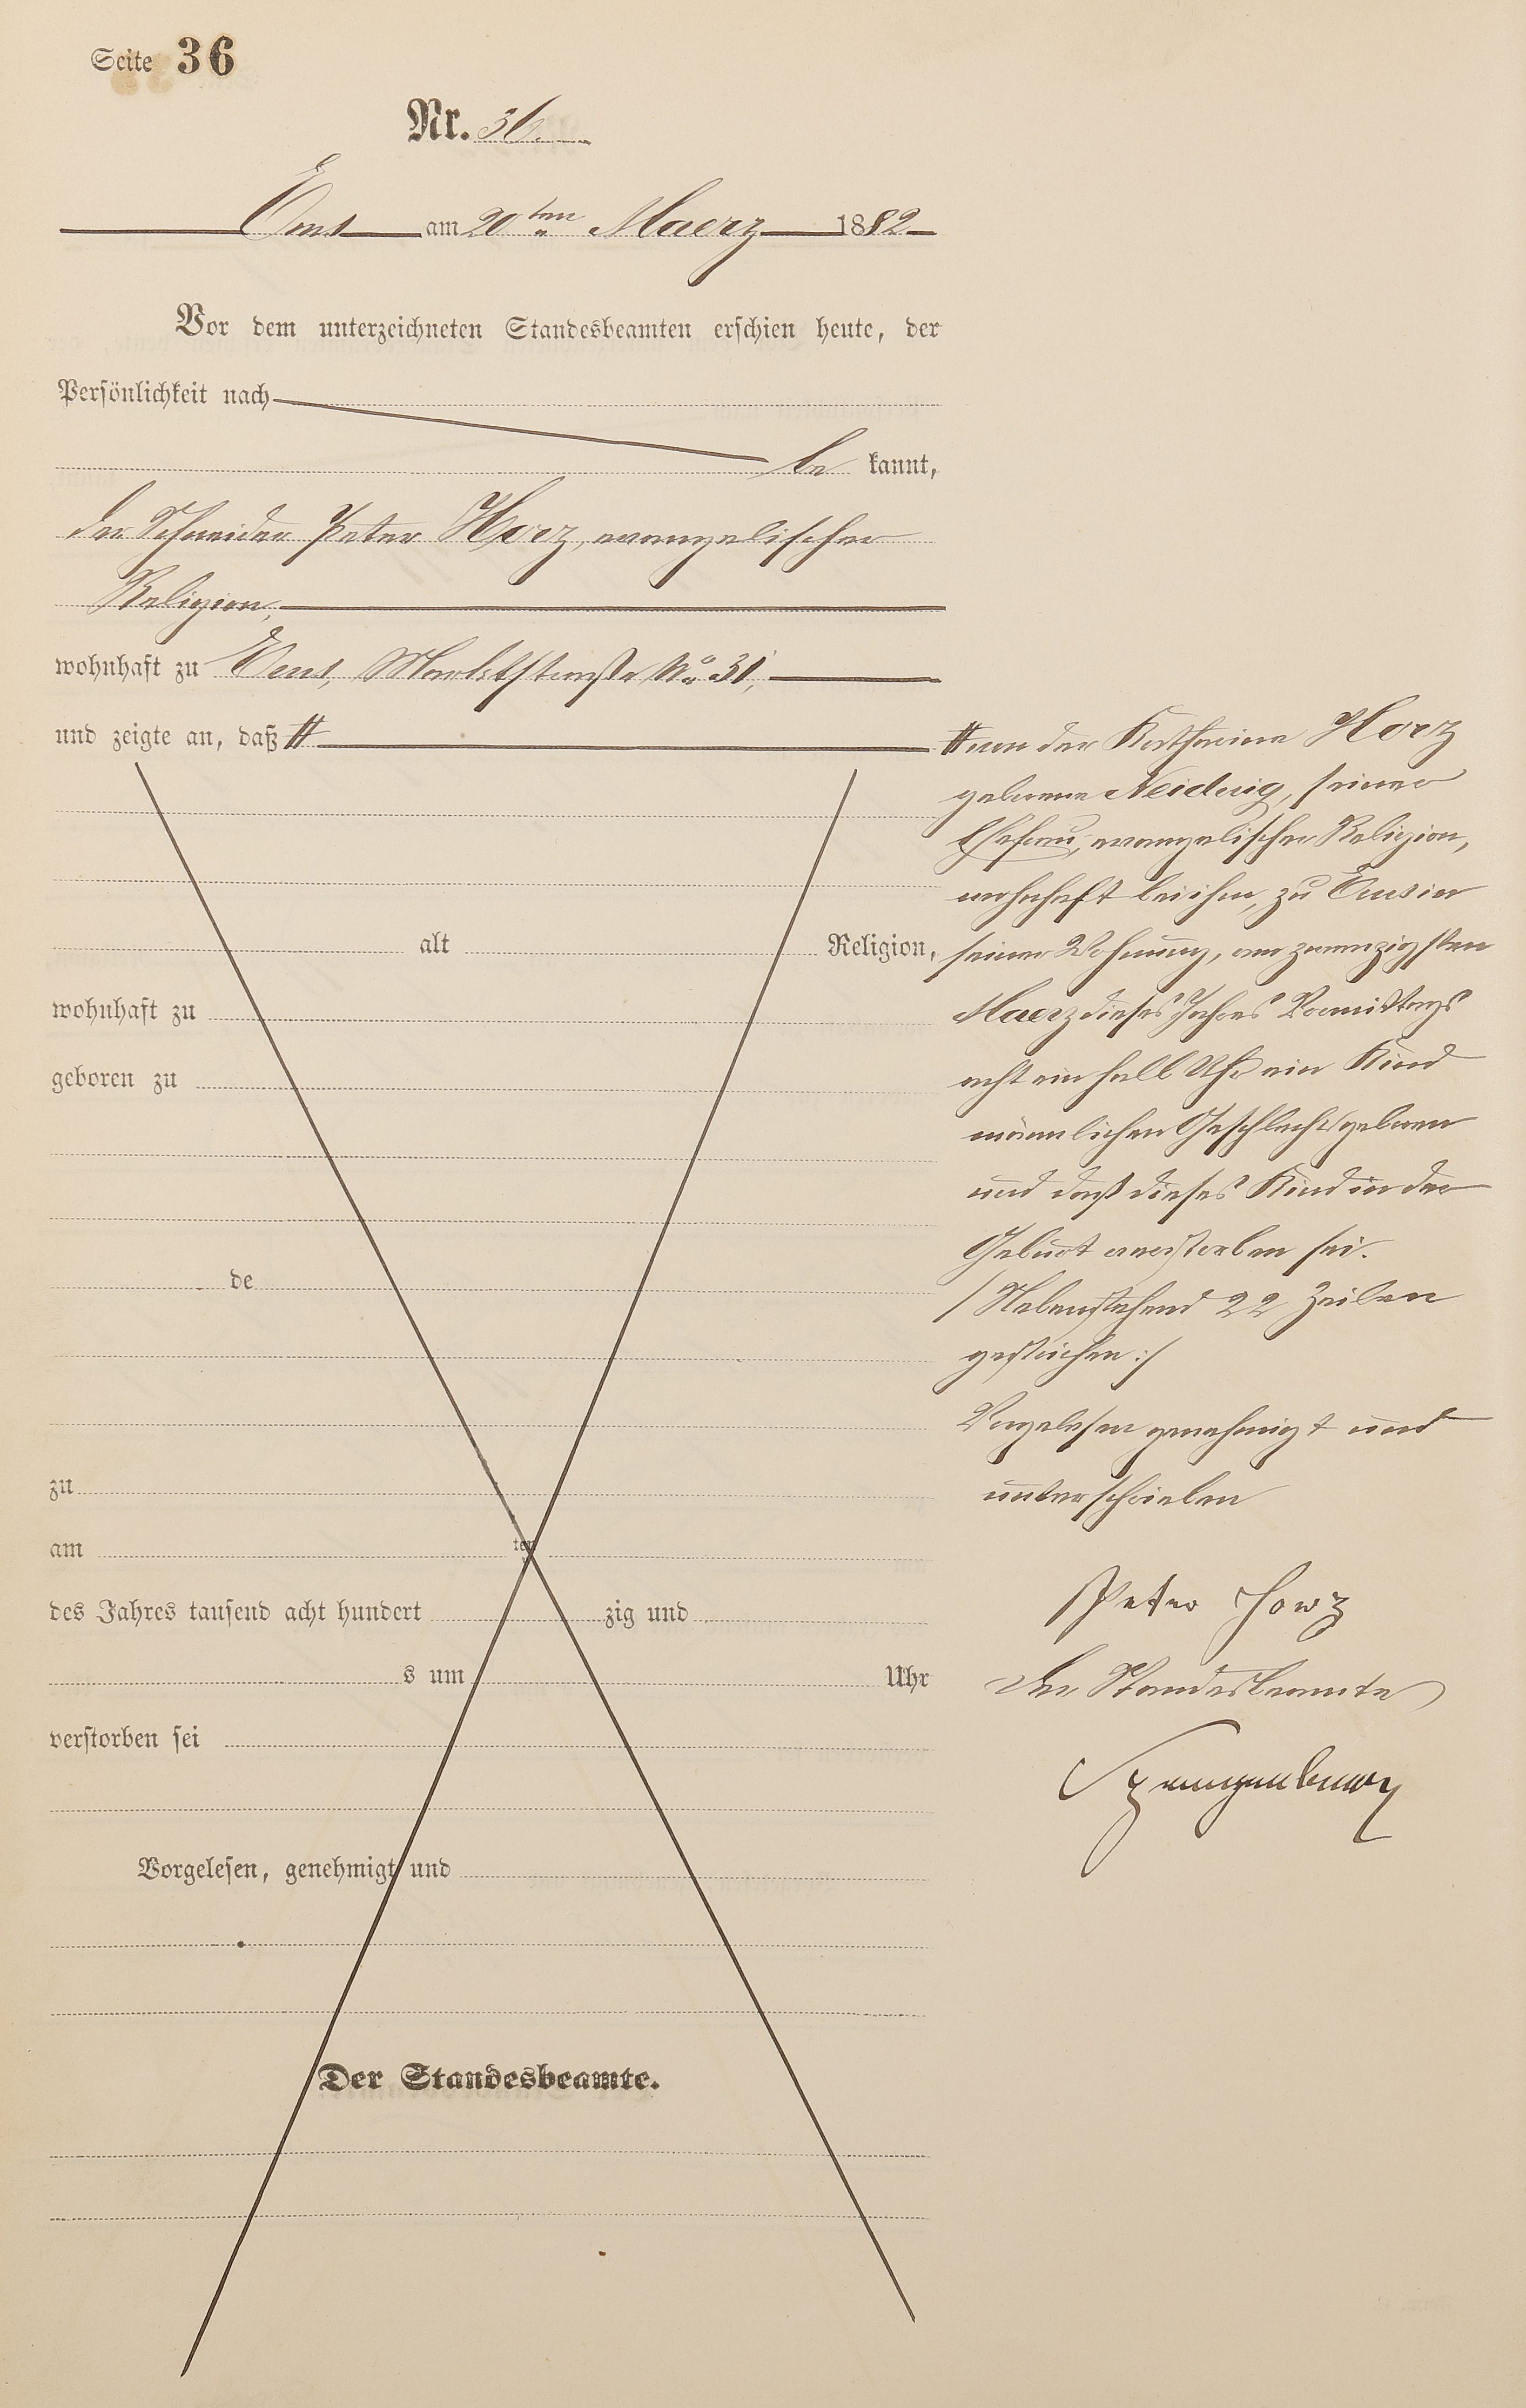 Seite 36
Nr. 36.
Ems am 20ten Maerz 1882
Vor dem unterzeichneten Standesbeamten erschien heute, der
Persönlichkeit nach
be kannt,
der Schneider Peter Horz, evangelischer
Religion,
wohnhaft zu Ems, Marktstraße No 31,
und zeigte an, daß #
alt Religion,
wohnhaft zu
geboren zu
de
zu
am ten
des Jahres tausend acht hundert zig und
s um Uhr
verstorben sei
Vorgelesen, genehmigt und
Der Standesbeamte.
# von der Katharina Horz
geborene Neidwig, seiner
Ehefrau, evangelischer Religion,
wohnhaft bei ihm, zu Ems in
seiner Wohnung, am zwanzigsten
Maerz dieses Jahres Vormittags
acht ein halb Uhr ein Kind
männlichen Geschlechts geboren
und daß dieses Kind in der
Geburt verstorben sei.
/ Nebenstehend 22 Zeilen
gestrichen :/
Vorgelesen genehmigt und
unterschrieben
Peter Horz
Der Standesbeamte
Spangenberg